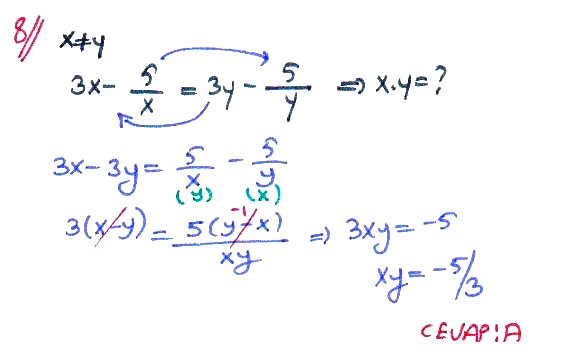 8//
x≠y
3x - 5/x = 3y - 5/y ⇒ x.y = ?
3x - 3y = 5/x - 5/y
(y) (x)
3(x-y) = 5(y-x)/xy ⇒ 3xy = -5
-1
xy = -5/3
CEVAP:A